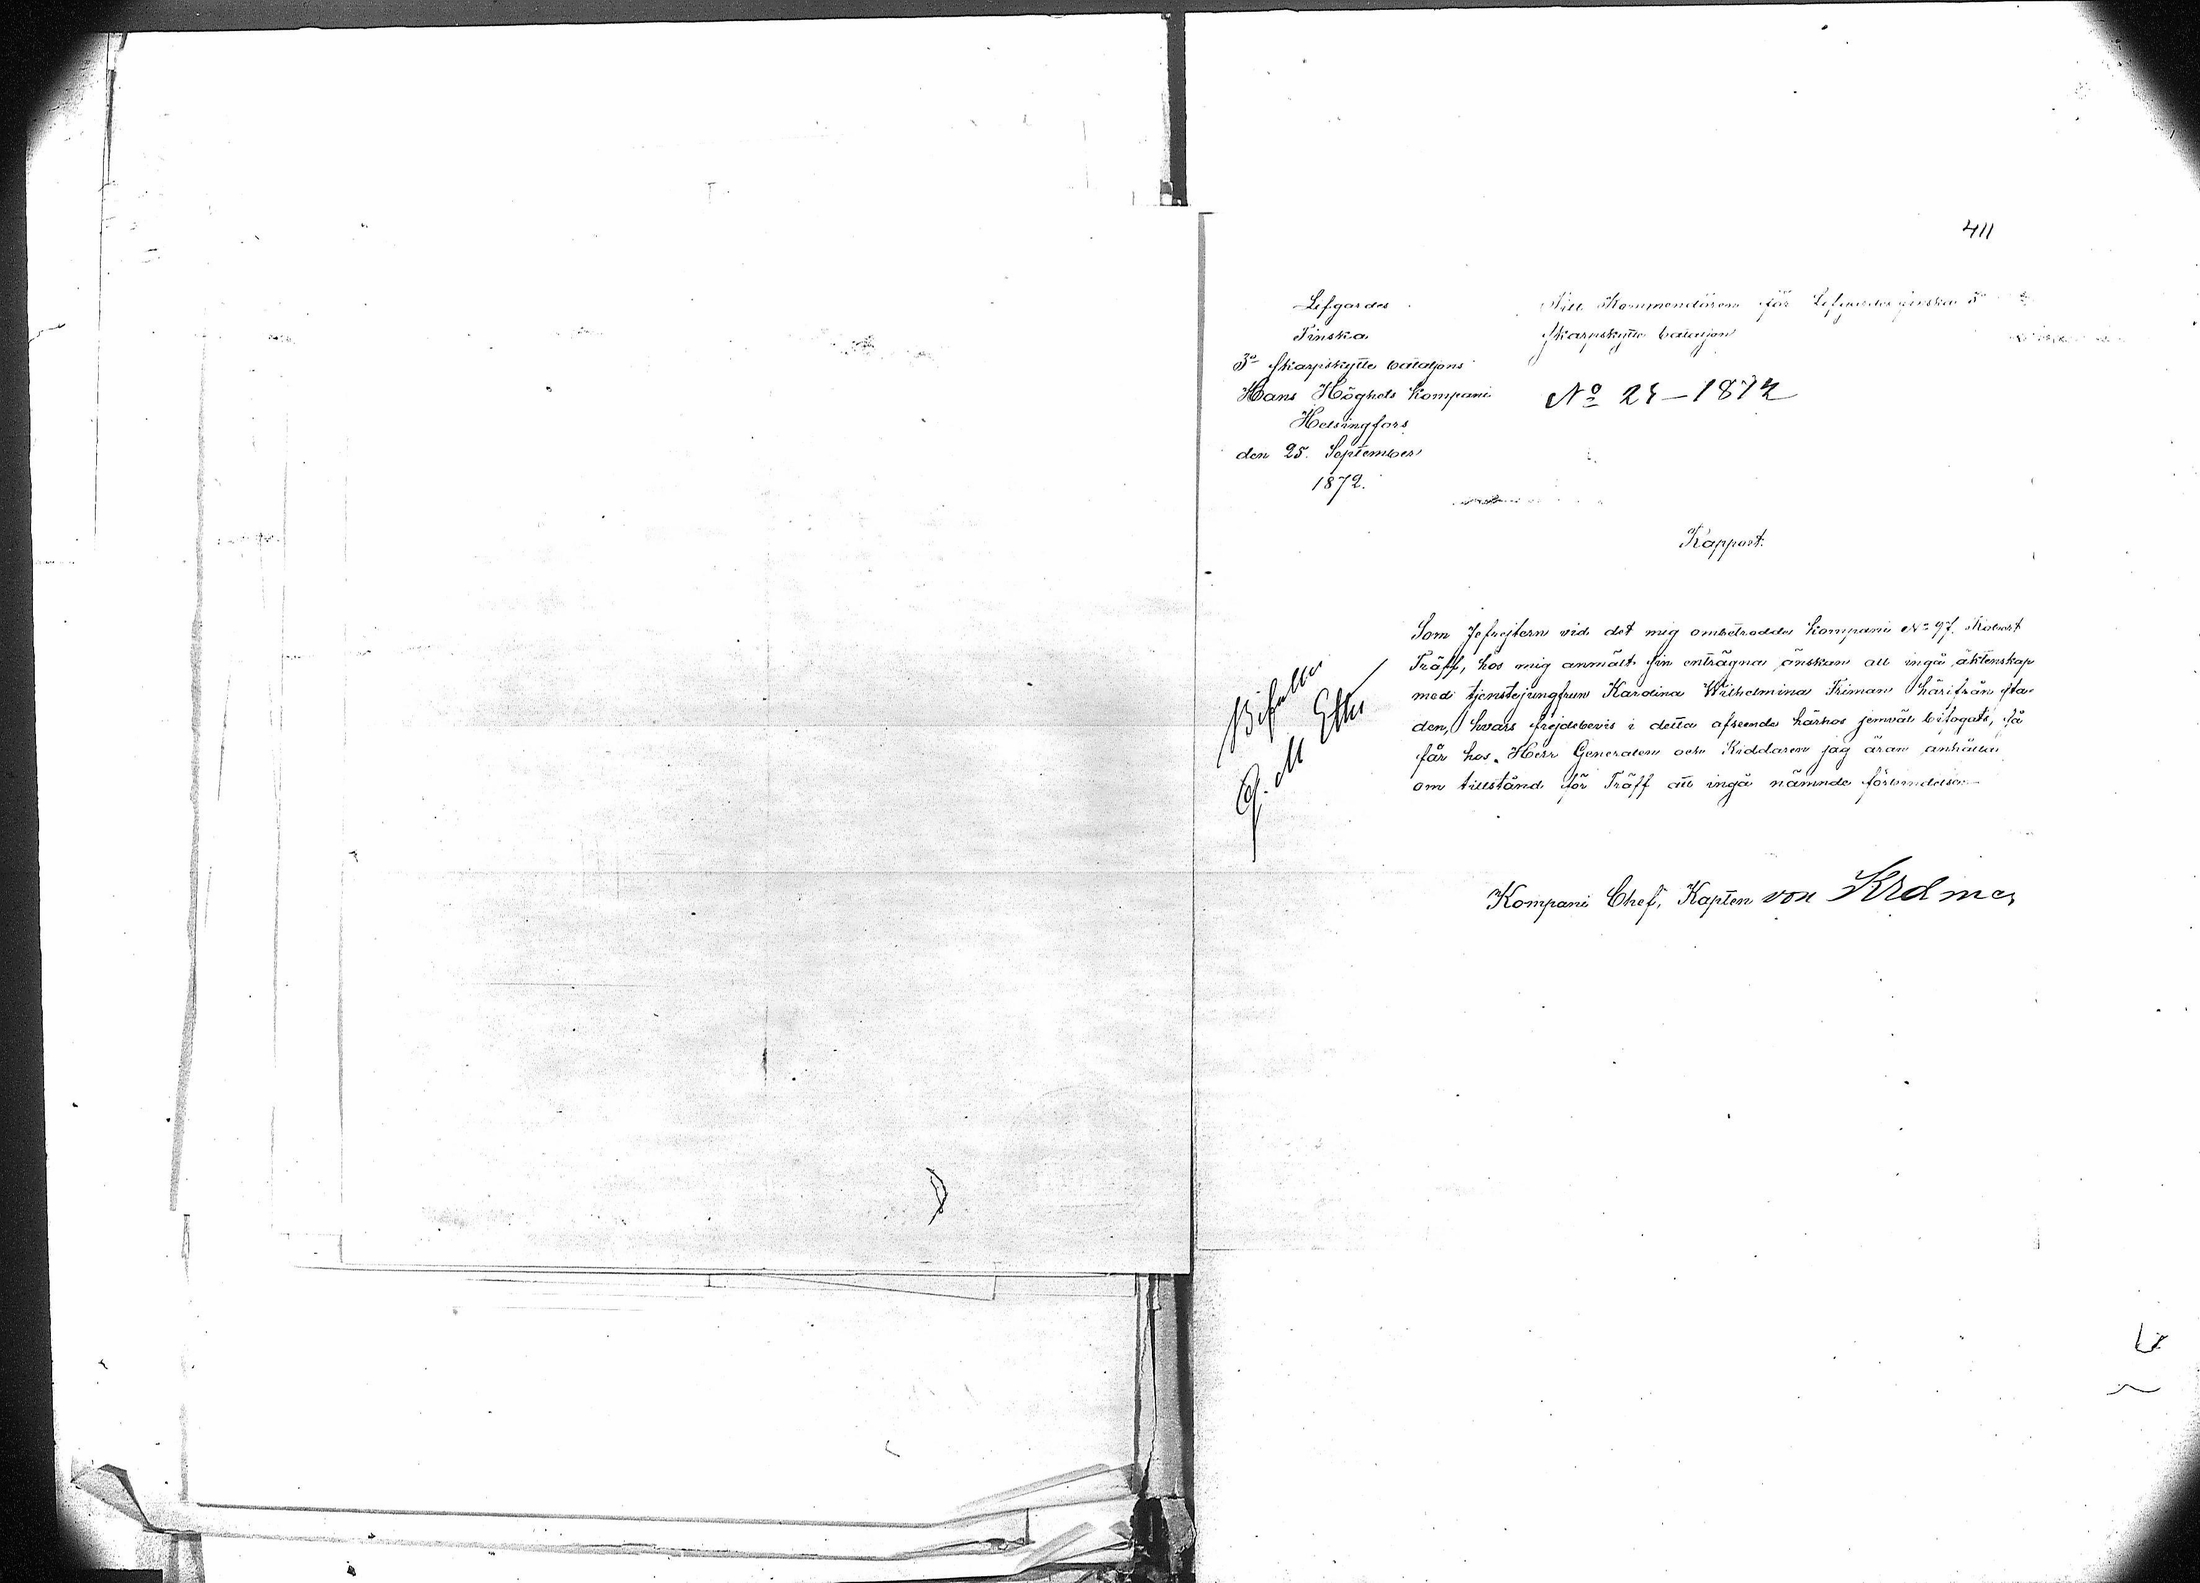 411
Lifgardes
Finska
3e Skarpskytte bataljons
Hans Höghets Kompani
Helsingfors
den 25. September
1872.
Till Kommendören för Lifgardes finska 3e
Skarpskytte bataljon
No 25-1872
Rapport.
Som Jefrejtern vid det mig ombetrodda kompani No 97. Robert
Träff, hos mig anmält sin enträgna önskan att ingå äktenskap
med tjenstejungfrun Karolina Wilhelmina Friman härifrån sta-
den, hvars frejdebevis i detta afseende härhos jemväl bifogats, så
får hos Herr Generalen och Riddaren jag äran anhålla
om tillstånd för Träff att ingå nämnde förbindelse.
Bifalles
G. M Etter
Kompani Chef, Kapten von